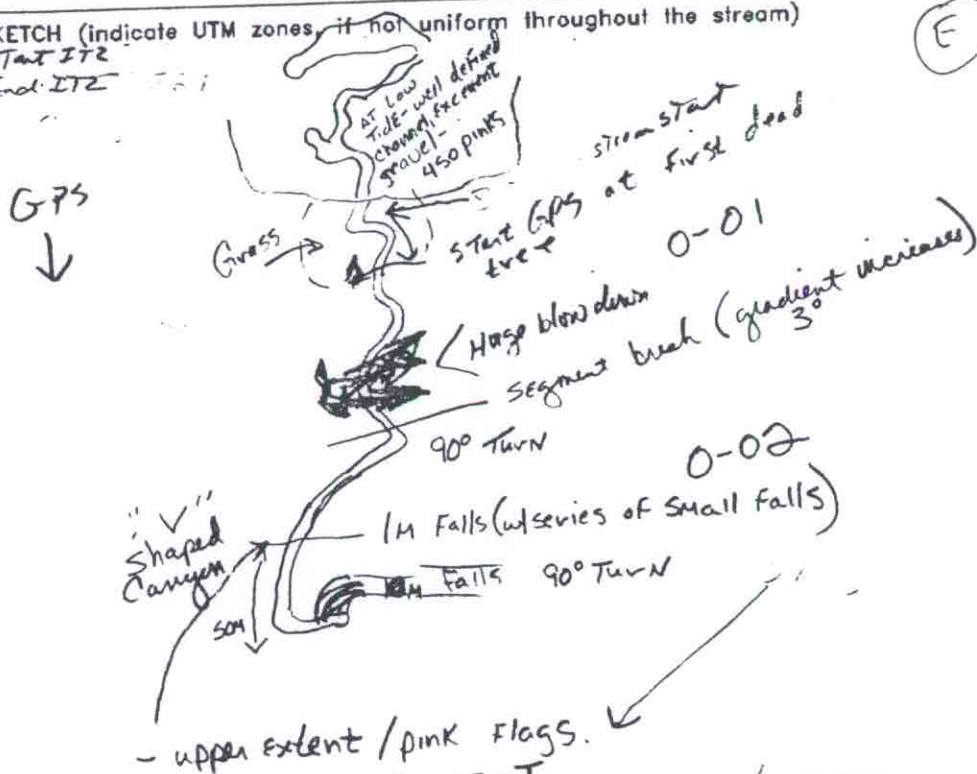 KETCH (indicate UTM zones, if not uniform throughout the stream)
E
AT Low
TidE- well defined
channel, Excement
gravel-
450 pinks
GPS
stream start
Grass
start Gps at first dead
tree
0-01
Huge blow down
segment break (gradient increases)
3°
90° TurN
0-02
"V"
shaped
Canyon
1M Falls (w/series of small falls)
M Falls 90° TurN
50M
- upper extent / pink Flags.